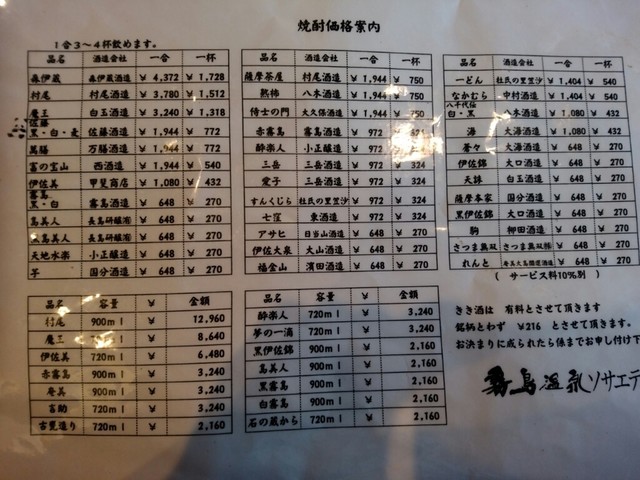 焼酎価格案内
1合3～4杯飲めます。
品名 酒造会社 一合 一杯
森伊蔵 森伊蔵酒造 ¥ 4,372 ¥ 1,728
村尾 村尾酒造 ¥ 3,780 ¥ 1,512
魔王 白玉酒造 ¥ 3,240 ¥ 1,318
佐藤
黒・白・麦 佐藤酒造 ¥ 1,944 ¥ 772
萬膳 万膳酒造 ¥ 1,944 ¥ 772
富の宝山 西酒造 ¥ 1,944 ¥ 540
伊佐美 甲斐商店 ¥ 1,080 ¥ 432
霧島
黒・白 霧島酒造 ¥ 648 ¥ 270
島美人 長島研醸㈲ ¥ 648 ¥ 270
島美人 長島研醸㈲ ¥ 648 ¥ 270
天地水楽 小正醸造 ¥ 648 ¥ 270
国分酒造 ¥ 648 ¥ 270
品名 酒造会社 一合 一杯
薩摩茶屋 村尾酒造 ¥ 1,944 ¥ 750
熟柿 八木酒造 ¥ 1,944 ¥ 750
侍士の門 大久保酒造 ¥ 1,944 ¥ 750
赤霧島 霧島酒造 ¥ 972 ¥ 324
酔楽人 小正醸造 ¥ 972 ¥
三岳 三岳酒造 ¥ 972 ¥ 324
愛子 三岳酒造 ¥ 972 ¥ 324
すんくじら 杜氏の里笠沙 ¥ 972 ¥ 324
七窪 東酒造 ¥ 972 ¥ 324
アサヒ 日当山酒造 ¥ 648 ¥ 270
伊佐大泉 大山酒造 ¥ 648 ¥ 270
福金山 濱田酒造 ¥ 648 ¥ 270
品名 酒造会社 一合 一杯
一どん 杜氏の里笠沙 ¥ 1,404 ¥ 540
なかむら 中村酒造 ¥ 1,404 ¥ 540
八千代伝
白・黒 八木酒造 ¥ 1,080 ¥ 432
海 大海酒造 ¥ 1,080 ¥ 432
蒼々 大海酒造 ¥ 648 ¥ 270
伊佐錦 大口酒造 ¥ 648 ¥ 270
天誅 白玉酒造 ¥ 648 ¥ 270
薩摩本家 国分酒造 ¥ 648 ¥ 270
黒伊佐錦 大口酒造 ¥ 648 ¥ 270
駒 柳田酒造 ¥ 648 ¥ 270
さつま無双 さつま無双㈱ ¥ 648 ¥ 270
れんと 奄美大島開運酒造 ¥ 648 ¥ 270
( サービス料10%別 )
品名 容量 ¥ 金額
村尾 900ml ¥ 12,960
魔王 900ml ¥ 8,640
伊佐美 720ml ¥ 6,480
赤霧島 900ml ¥ 3,240
奄美 900ml ¥ 3,240
吉助 720ml ¥ 3,240
720ml ¥ 2,160
品名 容量 ¥ 金額
酔楽人 720ml ¥ 3,240
夢の一滴 720ml ¥ 3,240
黒伊佐錦 900ml ¥ 2,160
島美人 900ml ¥ 2,160
黒霧島 900ml ¥ 2,160
白霧島 900ml ¥ 2,160
石の蔵から 720ml ¥ 2,160
きき酒は 有料とさせて頂きます
銘柄とわず ¥216 とさせて頂ます。
お決まりに成られたら係までお申し付け下
霧島温泉ソサエテ